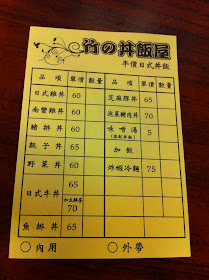 竹の丼飯屋
平價日式丼飯
品項 單價 數量 品項 單價 數量
日式雞丼 60 芝麻豚丼 65
南蠻雞丼 60 泡菜豬肉丼 70
豬排丼 60 味噌湯 5
親子丼 65 加飯
野菜丼 60 炸蝦冷麵 75
日式牛丼 65
70
魚排丼 65
○內用 ○外帶